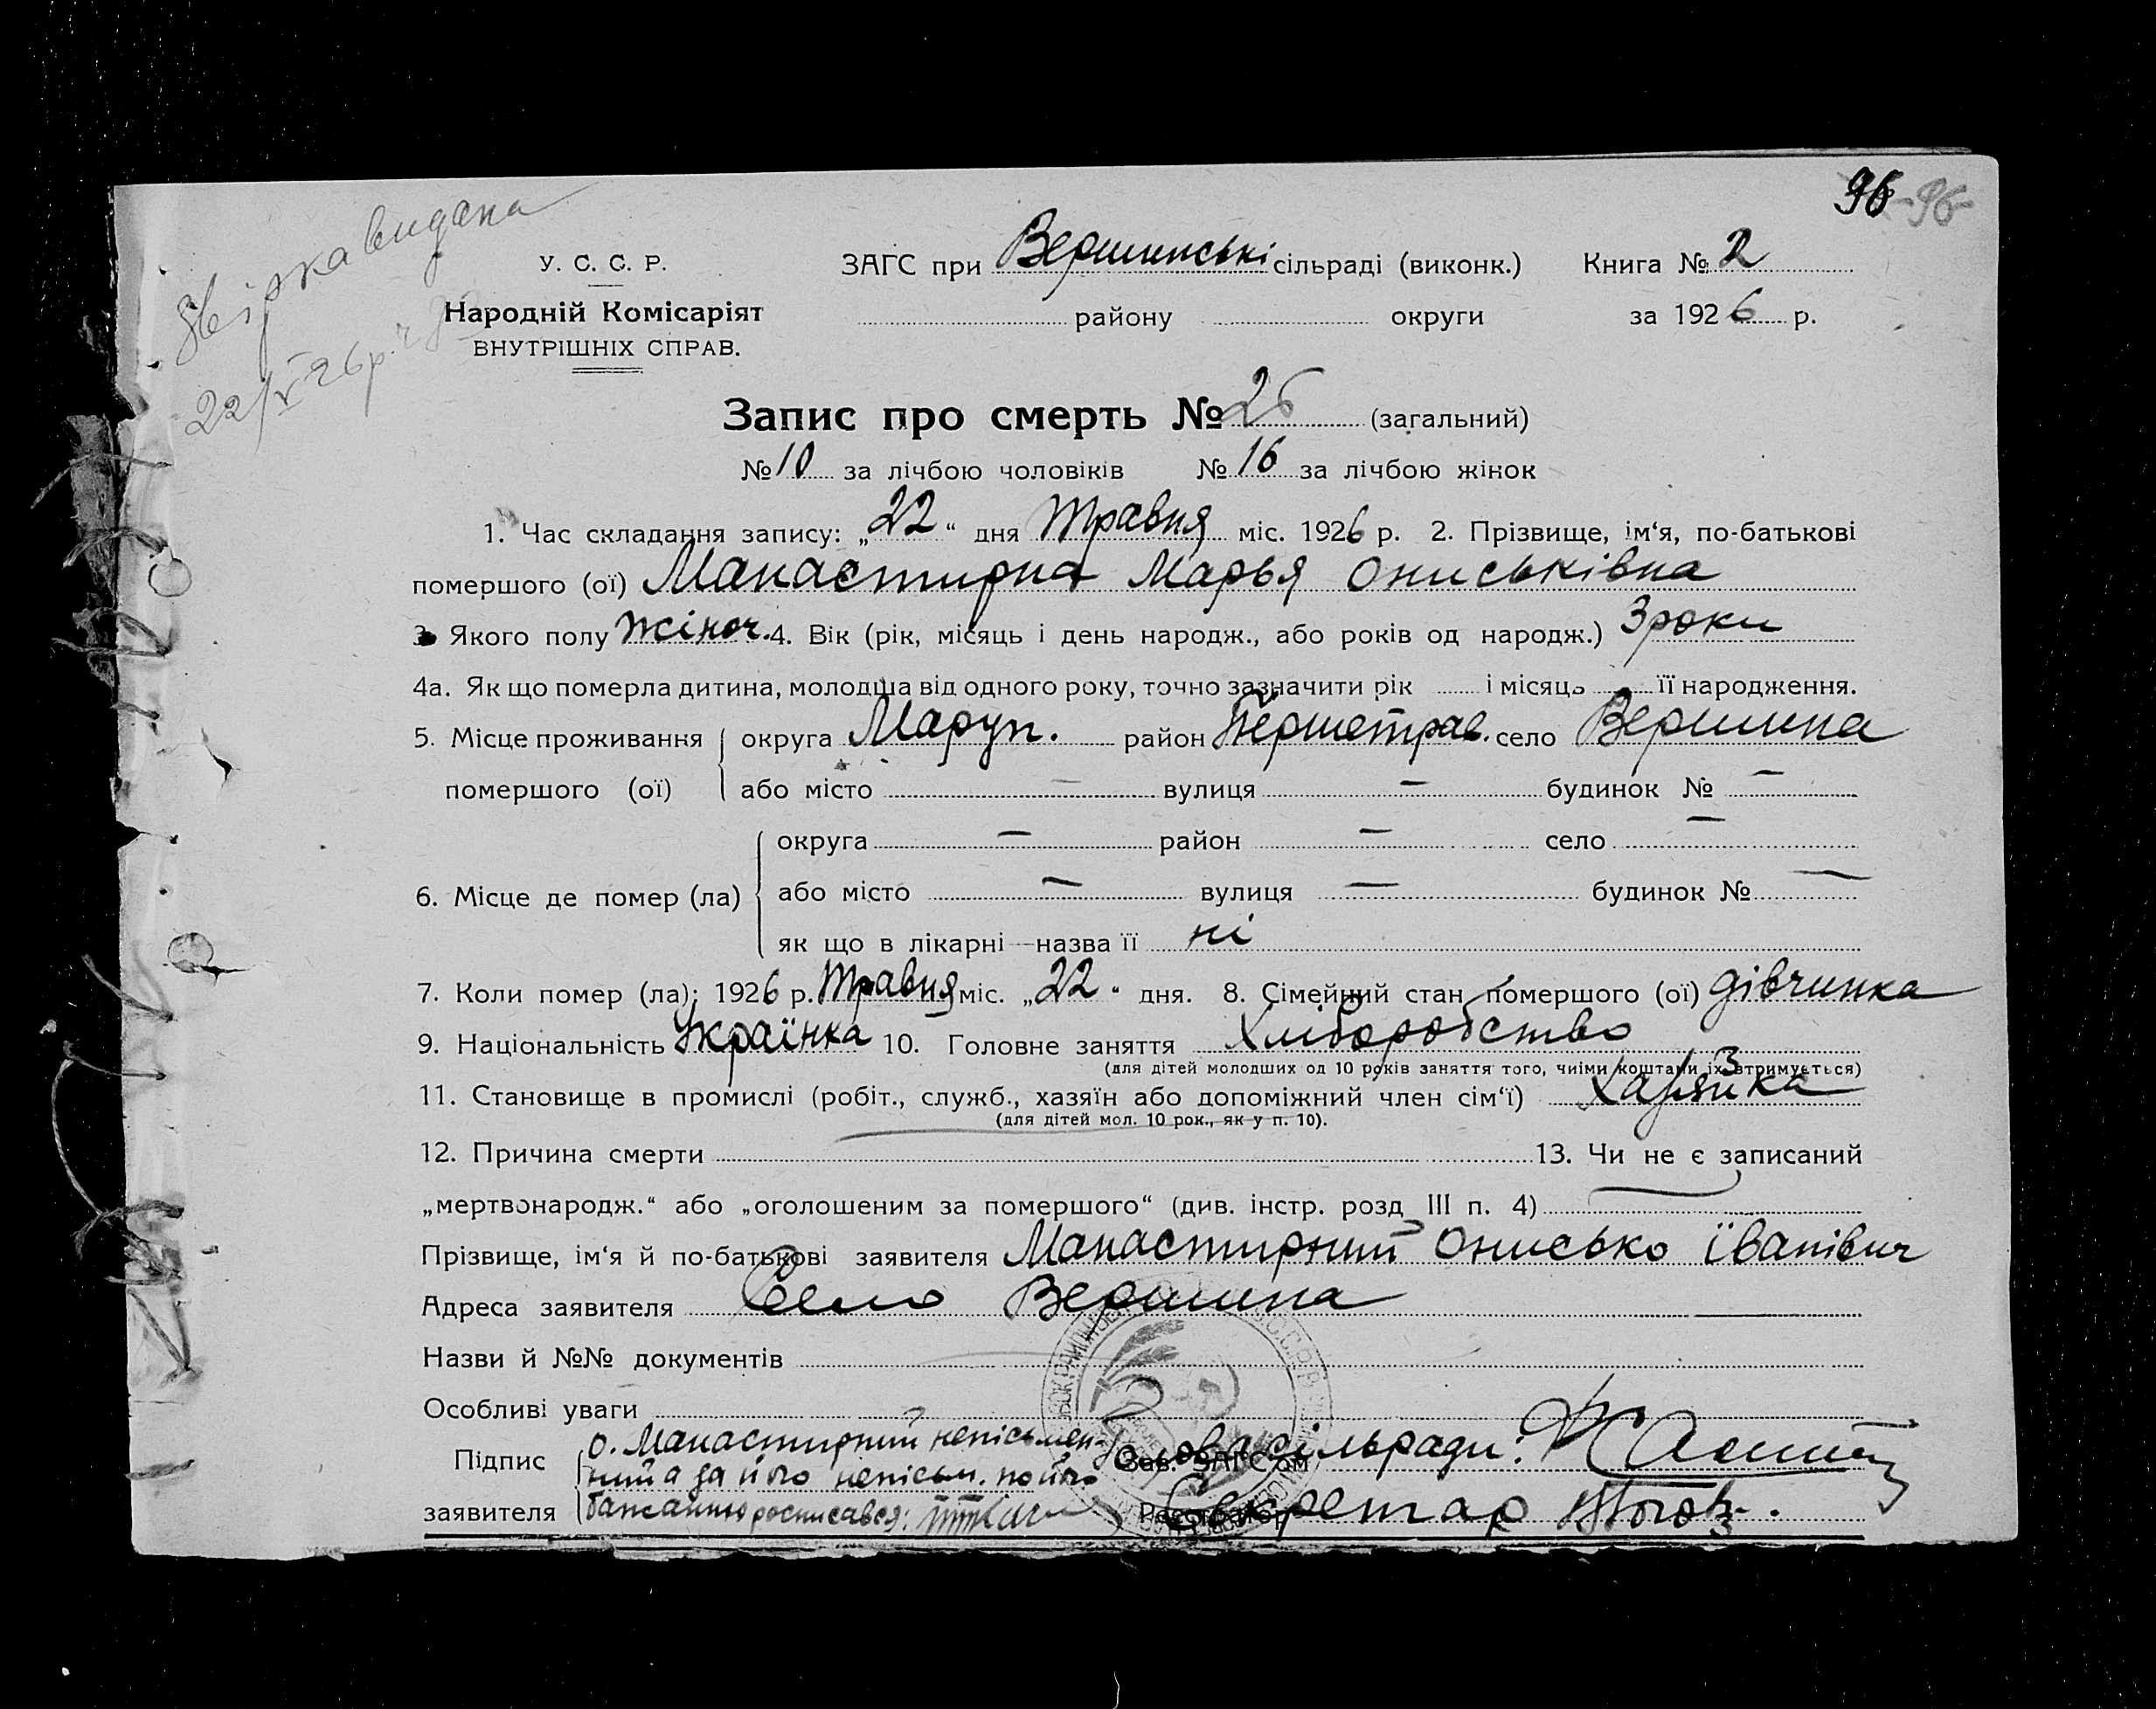 96 -96-
Звірка видана
22/V 26 р.
У. С. С. Р.
Народній Комісаріят
ВНУТРІШНІХ СПРАВ.
ЗАГС при Вершинські сільраді (виконк.) Книга № 2
району округи за 1926 р.
Запис про смерть № 26 (загальний)
№ 10 за лічбою чоловіків № 16 за лічбою жінок
1. Час складання запису: „22“ дня травня міс. 1926 р. 2. Прізвище, ім‘я, по-батькові
помершого (ої) Манастирна Марья Ониськівна
3. Якого полу жіноч. 4. Вік (рік, місяць і день народж., або років од народж.) 3 роки
4а. Як що померла дитина, молодша від одного року, точно зазначити рік і місяць її народження.
5. Місце проживання округа Маруп. район Першетрав. село Вершина
помершого (ої) або місто — вулиця — будинок № —
округа — район — село —
6. Місце де помер (ла) або місто — вулиця — будинок № —
як що в лікарні—назва її ні
7. Коли помер (ла): 1926 р. травня міс. „22“ дня. 8. Сімейний стан помершого (ої) дівчинка
9. Національність Українка 10. Головне заняття Хліборобство
(для дітей молодших од 10 років заняття того, чиїми коштами їх утримується)
11. Становище в промислі (робіт., служб., хазяїн або допоміжний член сім‘ї)
(для дітей мол. 10 рок., як у п. 10).
12. Причина смерти 13. Чи не є записаний
„мертвонародж.“ або „оголошеним за помершого“ (див. інстр. розд III п. 4)
Прізвище, ім‘я й по-батькові заявителя Манастирний Онисько Їванівич
Адреса заявителя Село Вершина
Назви й №№ документів
Особливі уваги
Підпис О. Манастирний непісьмен- Зав. ЗАГС‘ом Голова сільради:
ний а за його непісьм. по його
заявителя бажанню росписався: Реєстратор Секретар